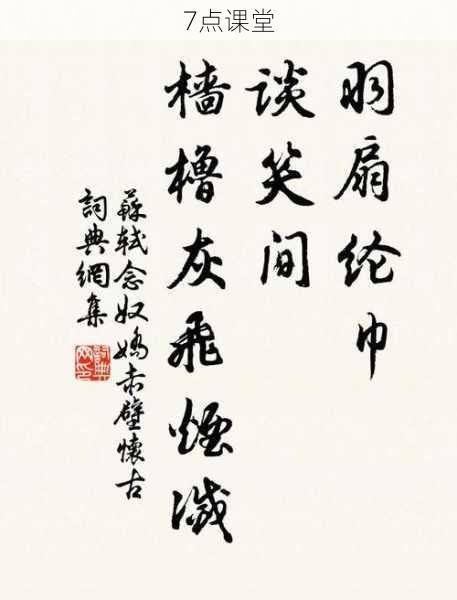 7点课堂
羽扇纶巾
谈笑间
樯橹灰飞煙灭
蘇轼念奴娇赤壁懷古
詞典網集